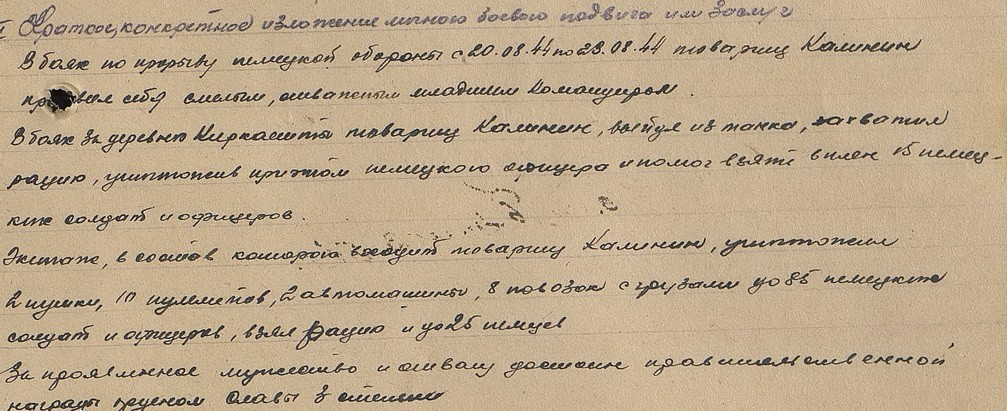 I Краткое, конкретное изложение личного боевого подвига или заслуг
В боях по прорыву немецкой обороны с 20.08.44 по 23.08.44 товарищ Калинин
проявил себя смелым, отважным младшим командиром.
В боях за деревню Киркаешты товарищ Калинин, выйдя из танка, захватил
рацию, уничтожив при этом немецкого офицера и помог взять в плен 15 немец-
ких солдат и офицеров.
Экипаж, в состав которого входит товарищ Калинин, уничтожил
2 пушки, 10 пулеметов, 2 автомашины, 8 повозок с грузами до 85 немецких
солдат и офицеров, взял рацию и до 25 немцев
За проявленное мужество и отвагу достоин правительственной
награды орденом Славы 3 степени